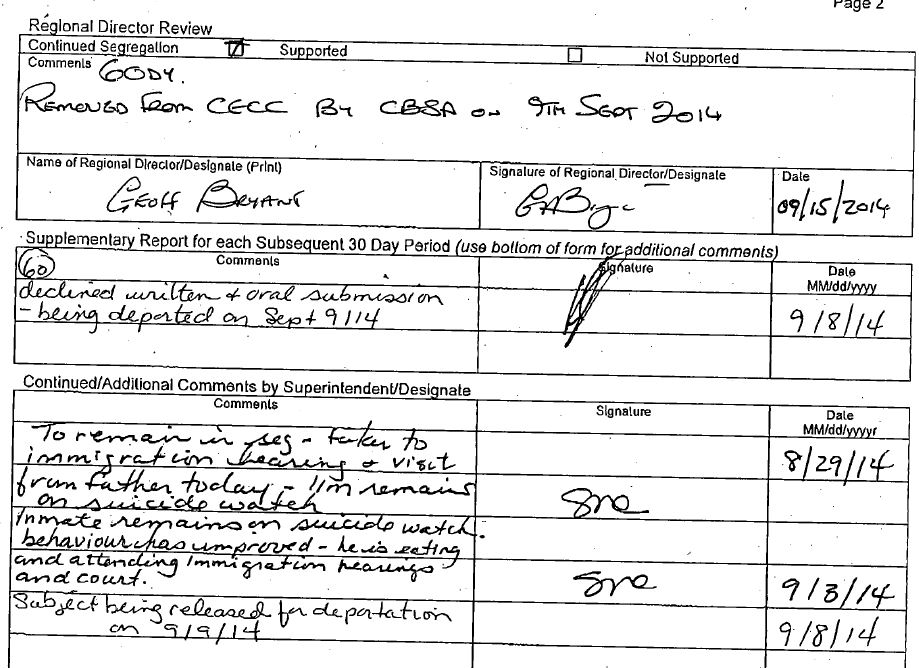 Page 2
Regional Director Review
Continued Segregation Supported Not Supported
Comments 60DY.
REMOVED FROM CECC BY CBSA ON 9TH SEPT 2014
Name of Regional Director/Designate (Print) Signature of Regional Director/Designate Date
GEOFF BRYANT 09/15/2014
Supplementary Report for each Subsequent 30 Day Period (use bottom of form for additional comments)
Comments Signature Date
MM/dd/yyyy
60
declined written + oral submission
- being deported on Sept 9/14 9/8/14
Continued/Additional Comments by Superintendent/Designate
Comments Signature Date
MM/dd/yyyyr
To remain in seg - taken to
immigration hearing + visit 8/29/14
from father today - I/m remains
on suicide watch
Inmate remains on suicide watch.
behaviour has improved - he is eating
and attending immigration hearings
and court. 9/3/14
Subject being released for deportation
on 9/9/14 9/8/14